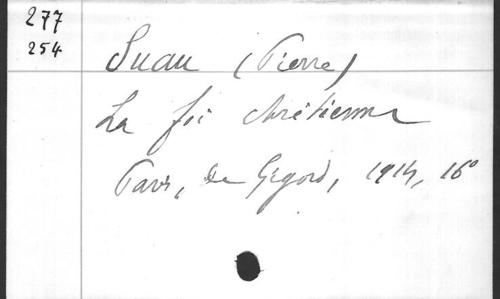 277
254
Suau (Pierre)
La foi chrétienne
Paris, de Gigord, 1914, 16°